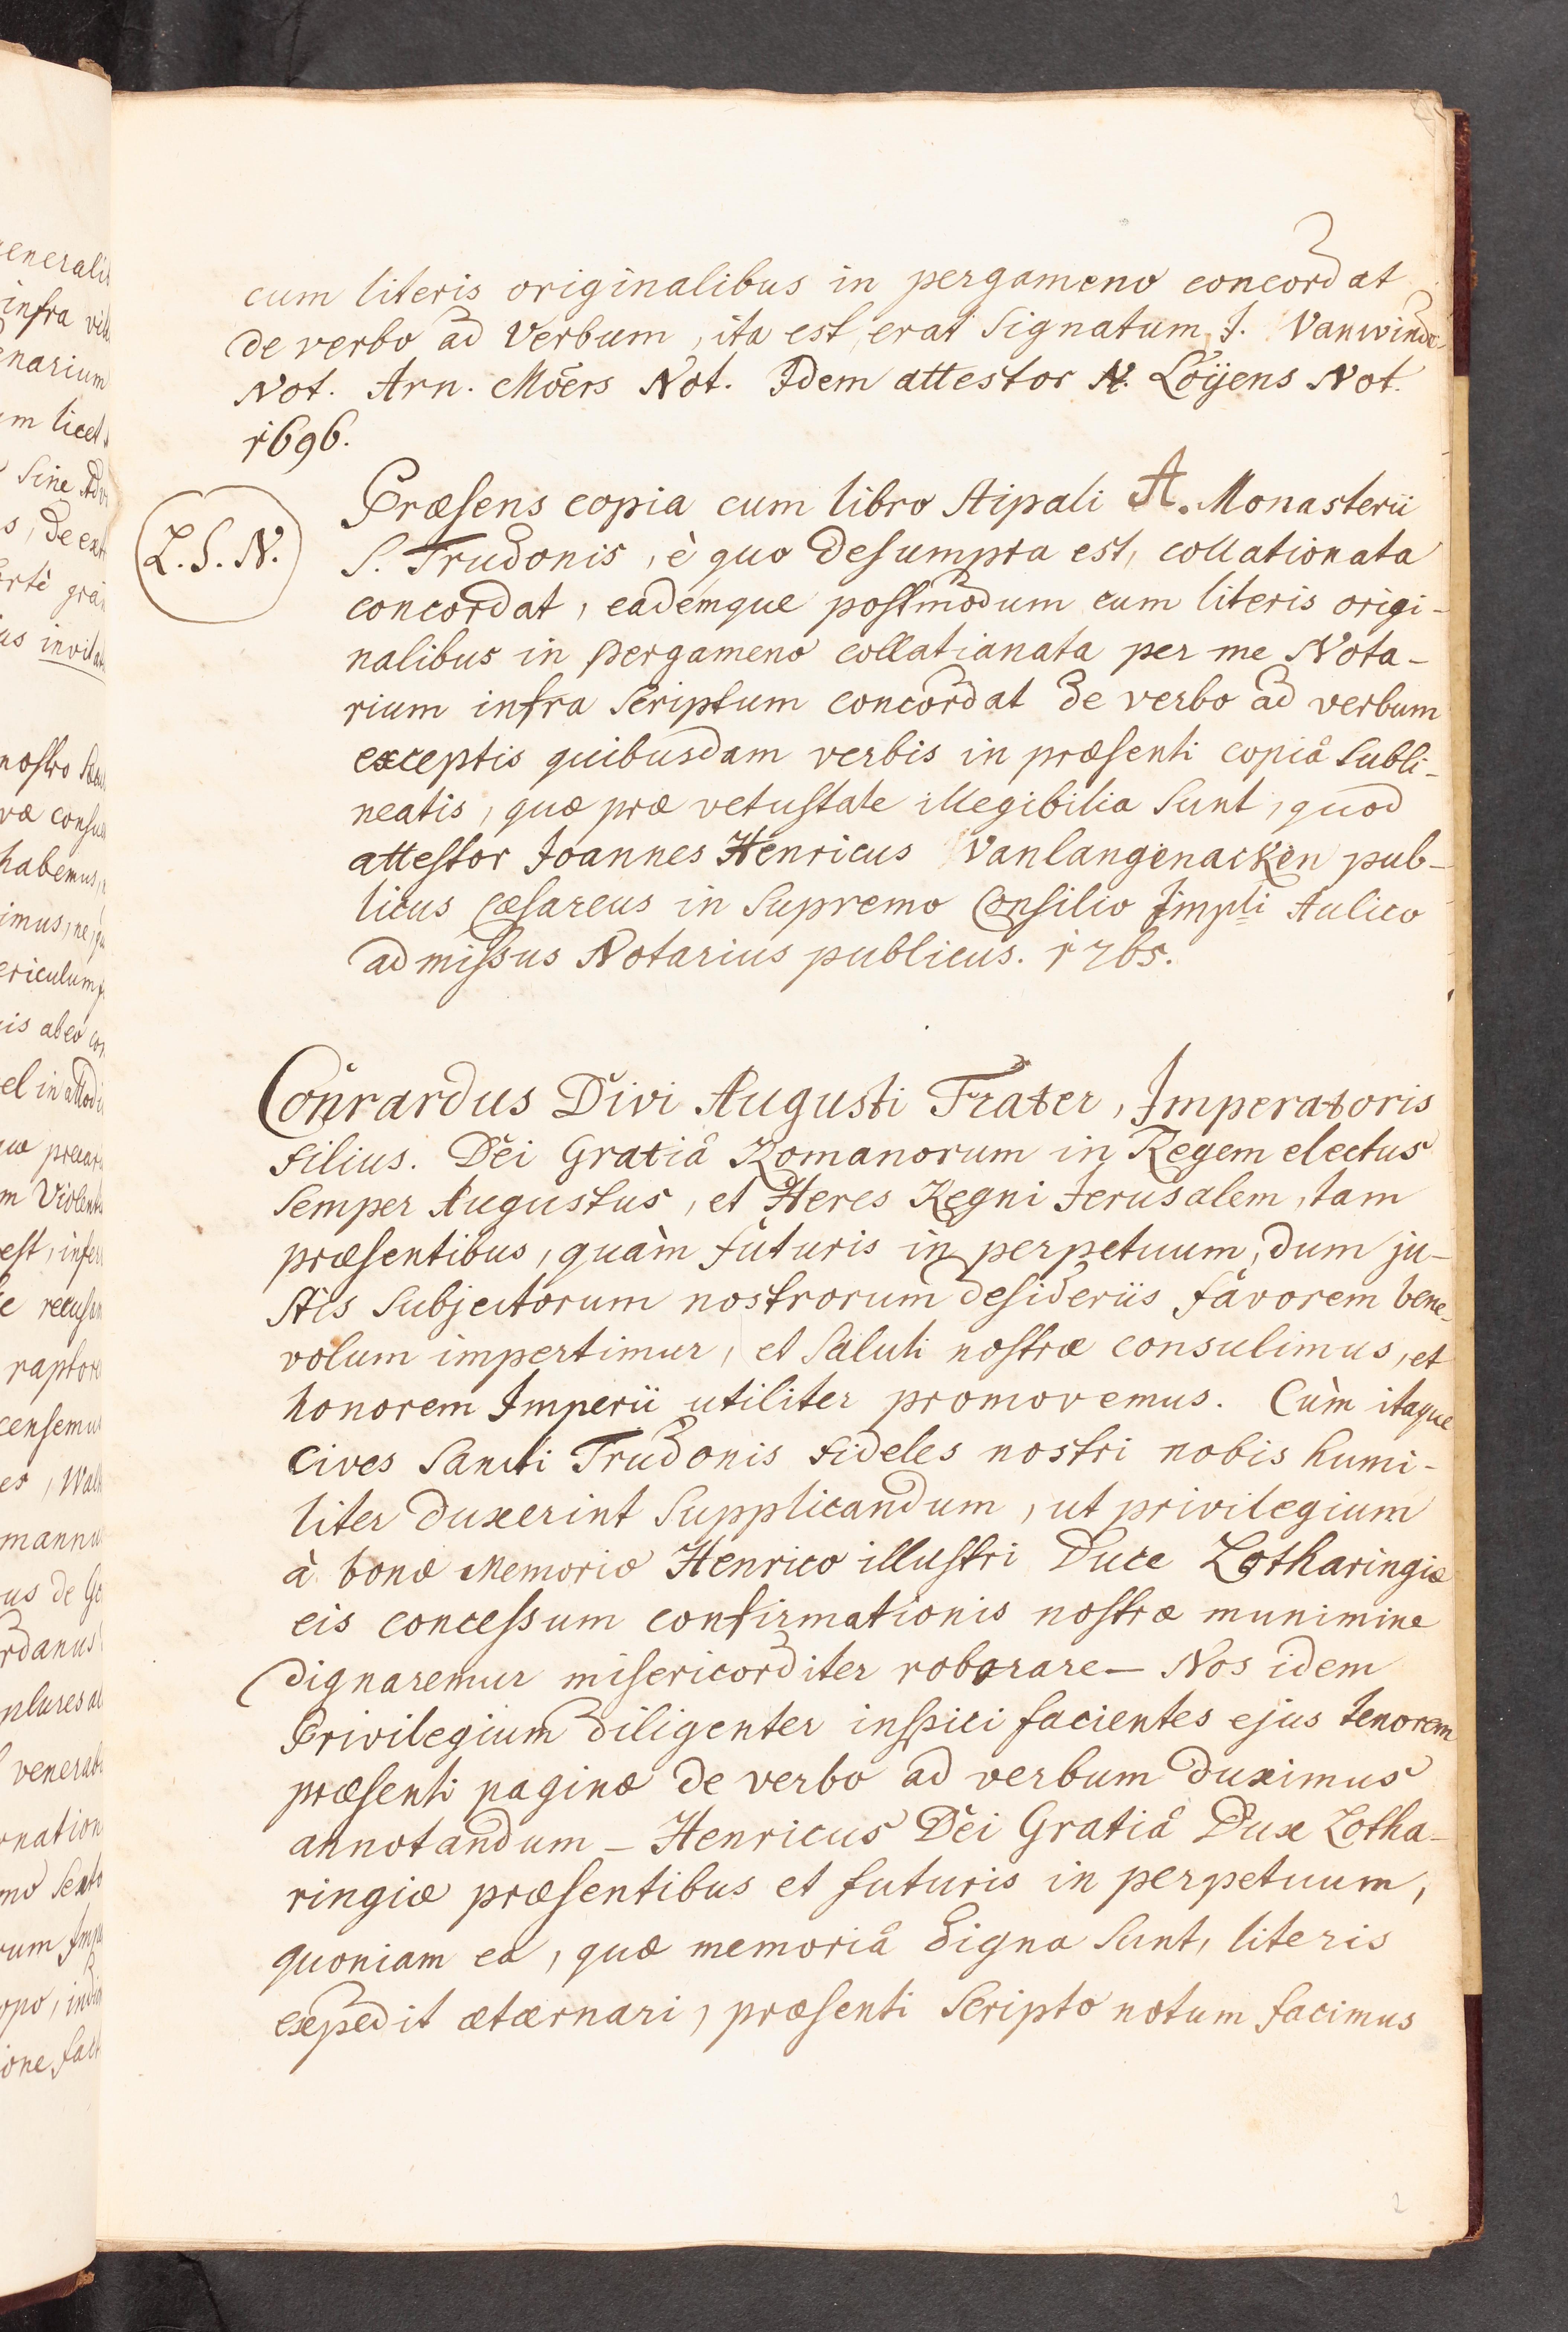 cum literis originalibus in pergameno concordat
de verbo ad Verbum, ita est, erat Signatum J. Vanwinde-
Not. Arn. Moërs Not. Idem attestor N. Loÿens Not.
1696.
L.S.N.
Præsens copia cum libro Stipali A. Monasterii
S. Trudonis, è quo desumpta est, collationata
concordat, eademque postmodum cum literis origi-
nalibus in pergameno collatianata per me Nota-
rium infra Scriptum concordat de verbo ad verbum
exceptis quibusdam verbis in præsenti copiâ Subli-
neatis, quæ præ vetustate illegibilia Sunt, quod
attestor Joannes Henricus Vanlangenacken pub-
licus Cæsareus in Supremo Consilio Impli Aulico
admissus Notarius publicus. 1765.
Conrardus Divi Augusti Frater, Imperatoris
Filius. Dei Gratiâ Romanorum in Regem electus
Semper Augustus, et Heres Regni Jerusalem, tam
præsentibus, quàm futuris in perpetuum, dum ju-
stis Subjectorum nostrorum desideriis favorem bene-
volum impertimur, et Saluti nostræ consulimus, et
honorem Imperii utiliter promovemus. Cùm itaque
Cives Sancti Trudonis fideles nostri nobis humi-
liter duxerint Supplicandum, ut privilegium
à bonæ Memoriæ Henrico illustri Duce Lotharingiæ
eis concessum confirmationis nostræ munimine
dignaremur misericorditer roborare — Nos idem
Privilegium diligenter inspici facientes ejus tenorem
præsenti paginæ de verbo ad verbum duximus
annotandum — Henricus Dei Gratiâ Dux Lotha-
ringiæ præsentibus et futuris in perpetuum,
quoniam ea, quæ memoriâ digna Sunt, literis
expedit ætærnari, præsenti Scripto notum facimus
2